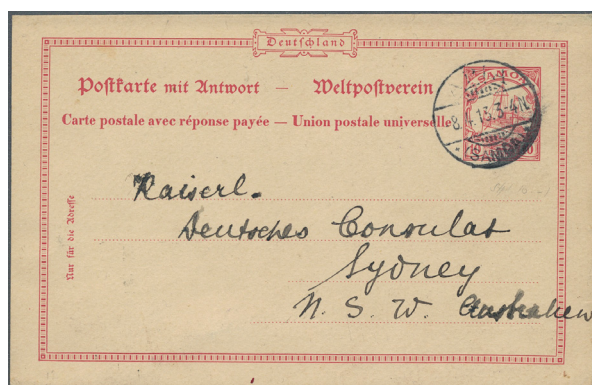 Deutschland
Postkarte mit Antwort — Weltpostverein
Carte postale avec réponse payée — Union postale universelle
SAMOA
8.4.13.3-4N.
(SAMOA)
Nur für die Adresse
Kaiserl.
Deutsches Consulat
Sydney
N. S. W. Australien